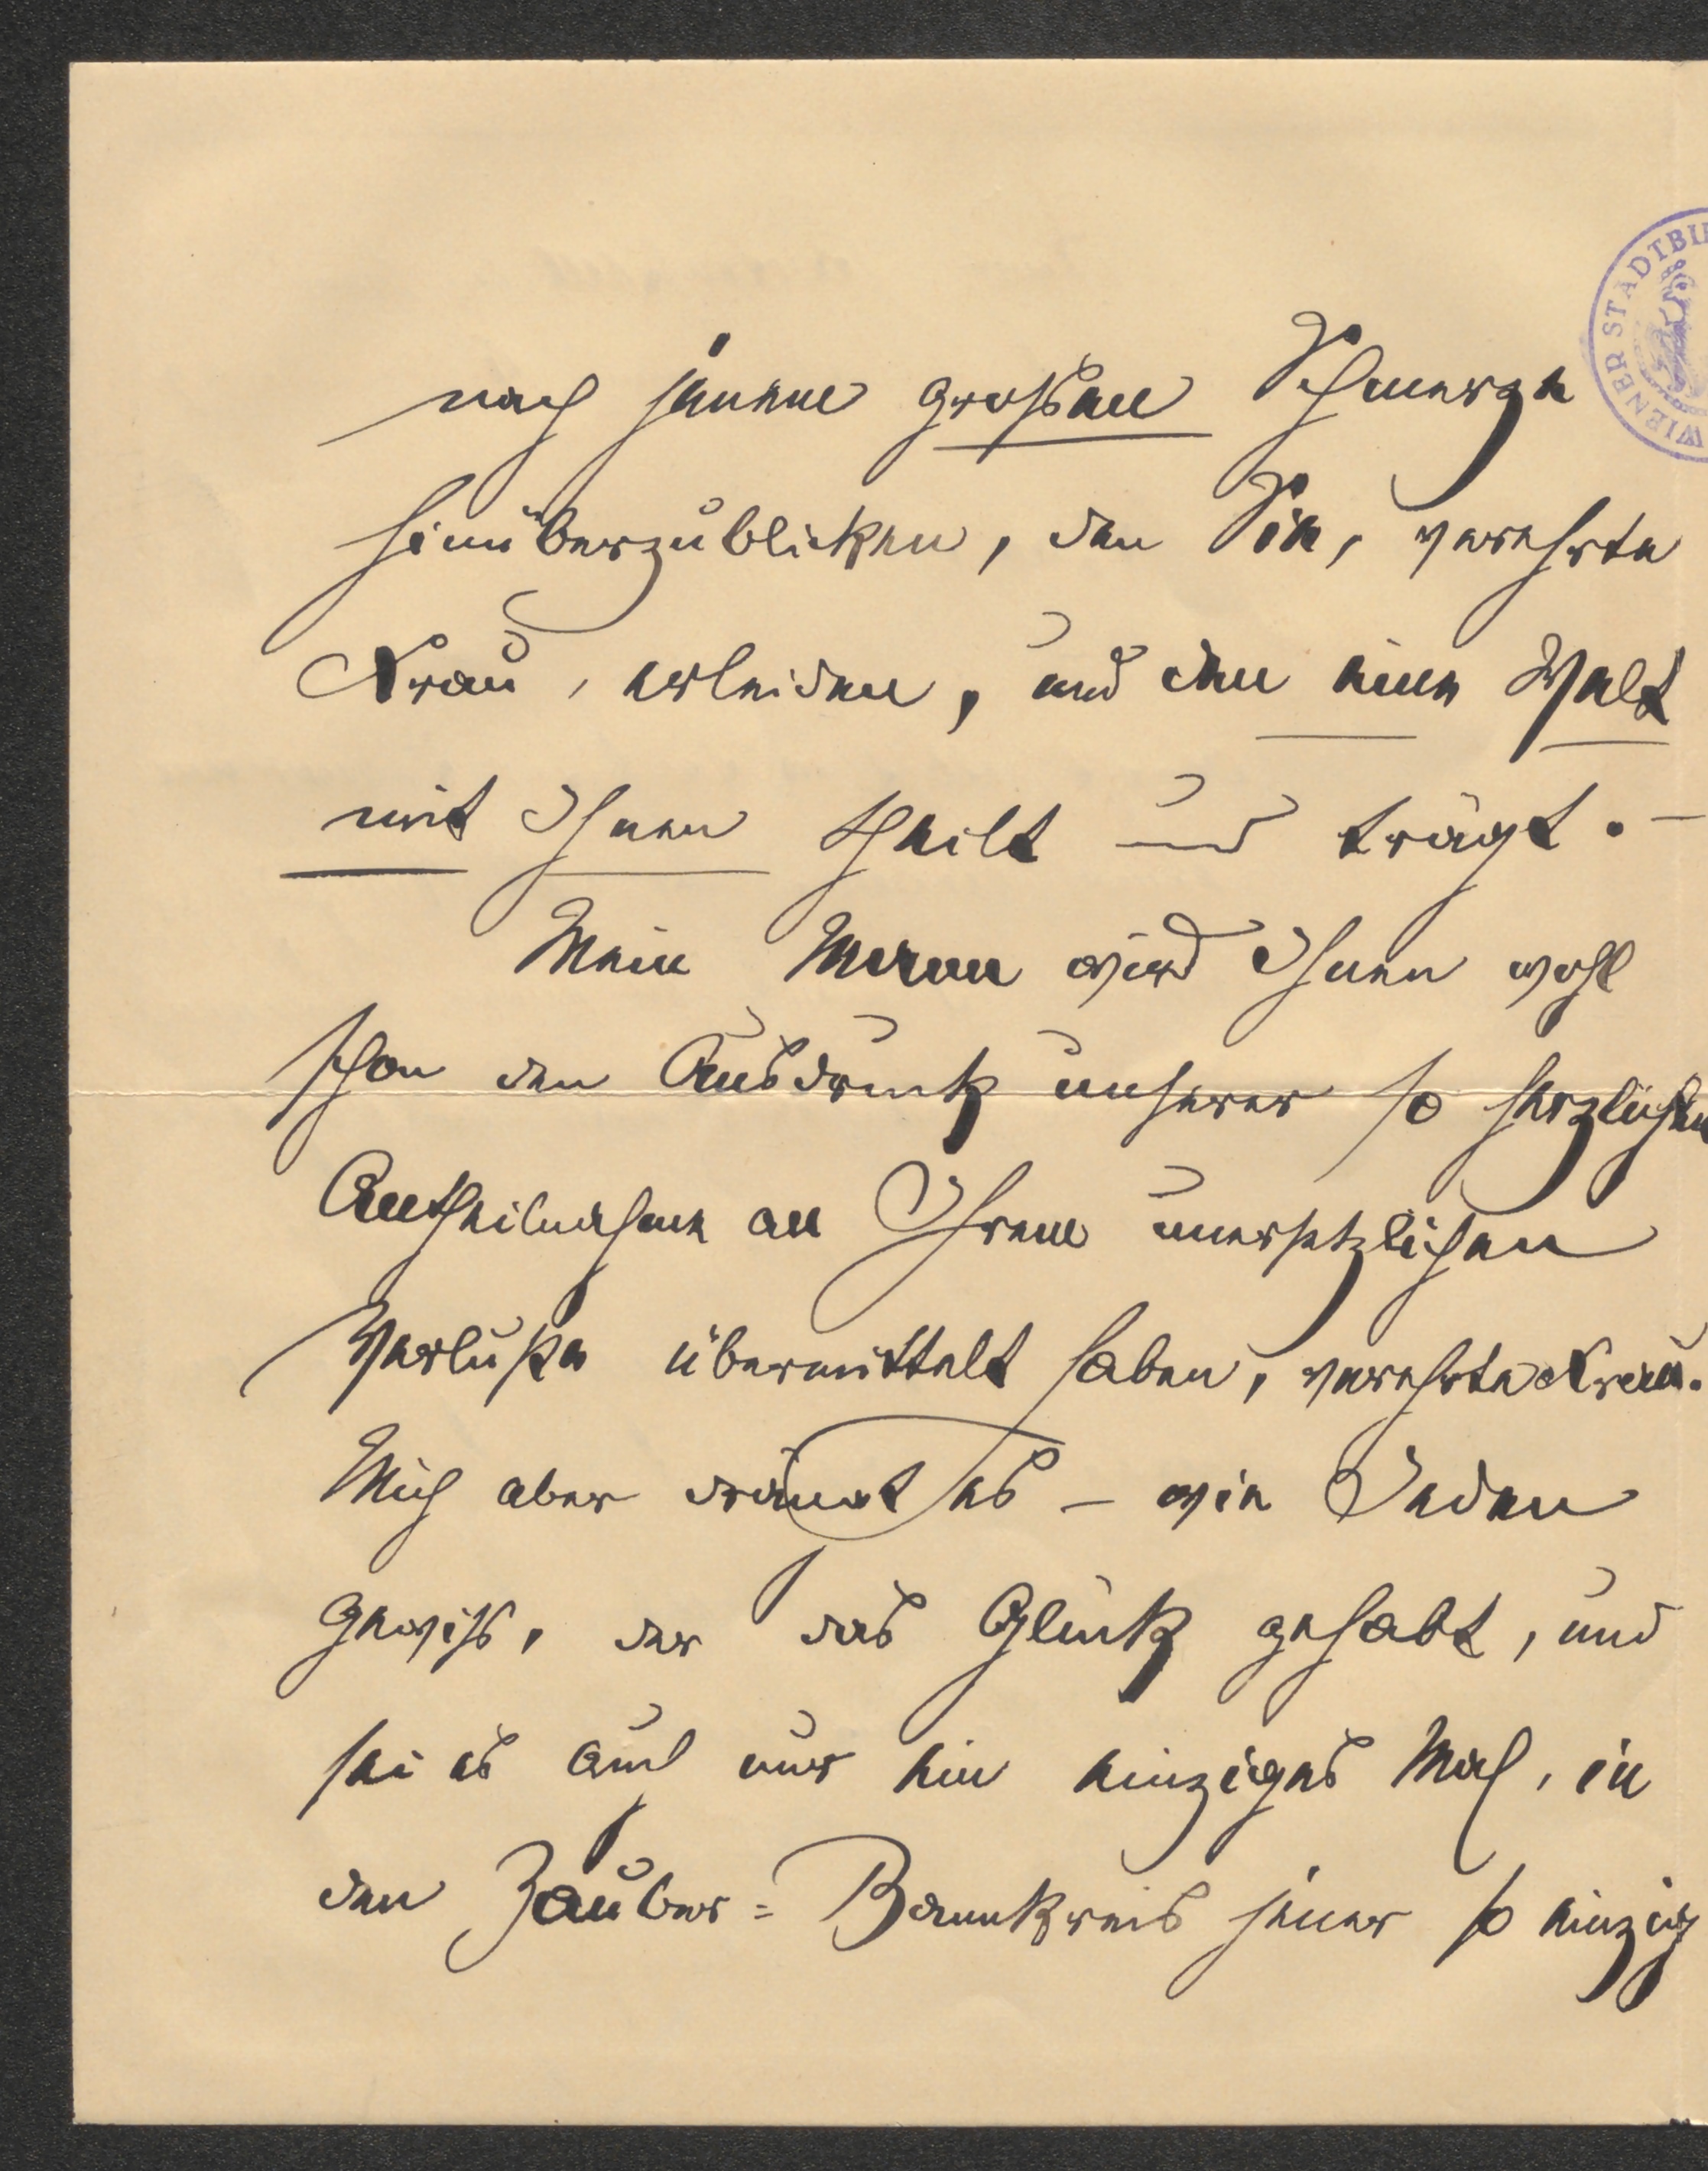 nach jenem großen Schmerze
hinüberzublicken, den Sie, verehrte
Frau, erleiden, und den eine Welt
mit Ihnen theilt und trägt. –
Mein Mann wird Ihnen wohl
schon den Ausdruck unserer so herzlichen
Antheilnahme an Ihrem unersetzlichen
Verluste übermittelt haben, verehrte Frau.
Mich aber drängt es – wie Jeden
gewiß, der das Glück gehabt, und
sei es auch nur ein einziges Mal, in
den Zauber-Bannkreis jener so einzig
WIENER STADTBI